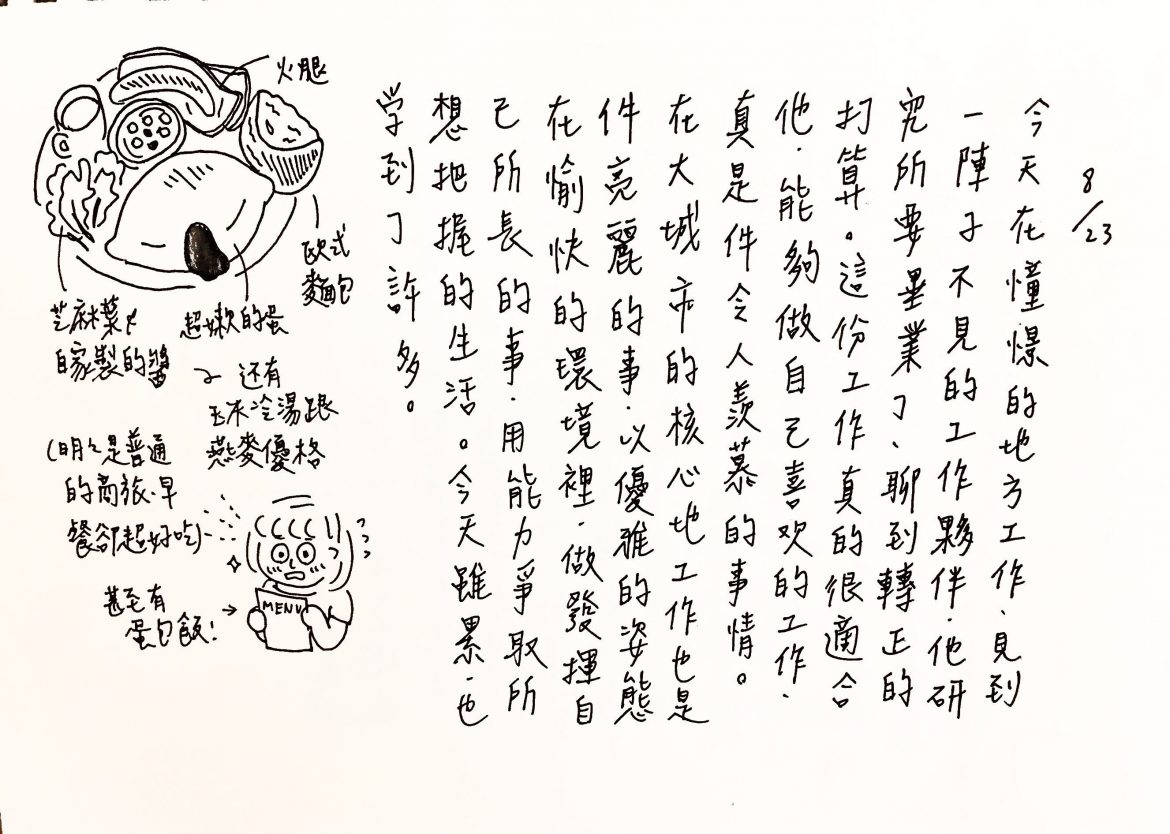 8/23
今天在憧憬的地方工作、見到
一陣子不見的工作夥伴．他研
究所要畢業了、聊到轉正的
打算。這份工作真的很適合
他．能夠做自己喜欢的工作．
真是件令人羨慕的事情。
在大城市的核心地工作也是
件亮麗的事．以優雅的姿態
在愉快的環境裡．做發揮自
己所長的事．用能力爭取所
想把握的生活。今天雖累．也
学到了許多。
火腿
欧式
麵包
超嫩的蛋
芝麻葉と
自家製的醬
还有
玉米冷湯跟
燕麥優格
(明々是普通
的商旅．早
餐卻超好吃)
甚至有
蛋包飯!
MENU